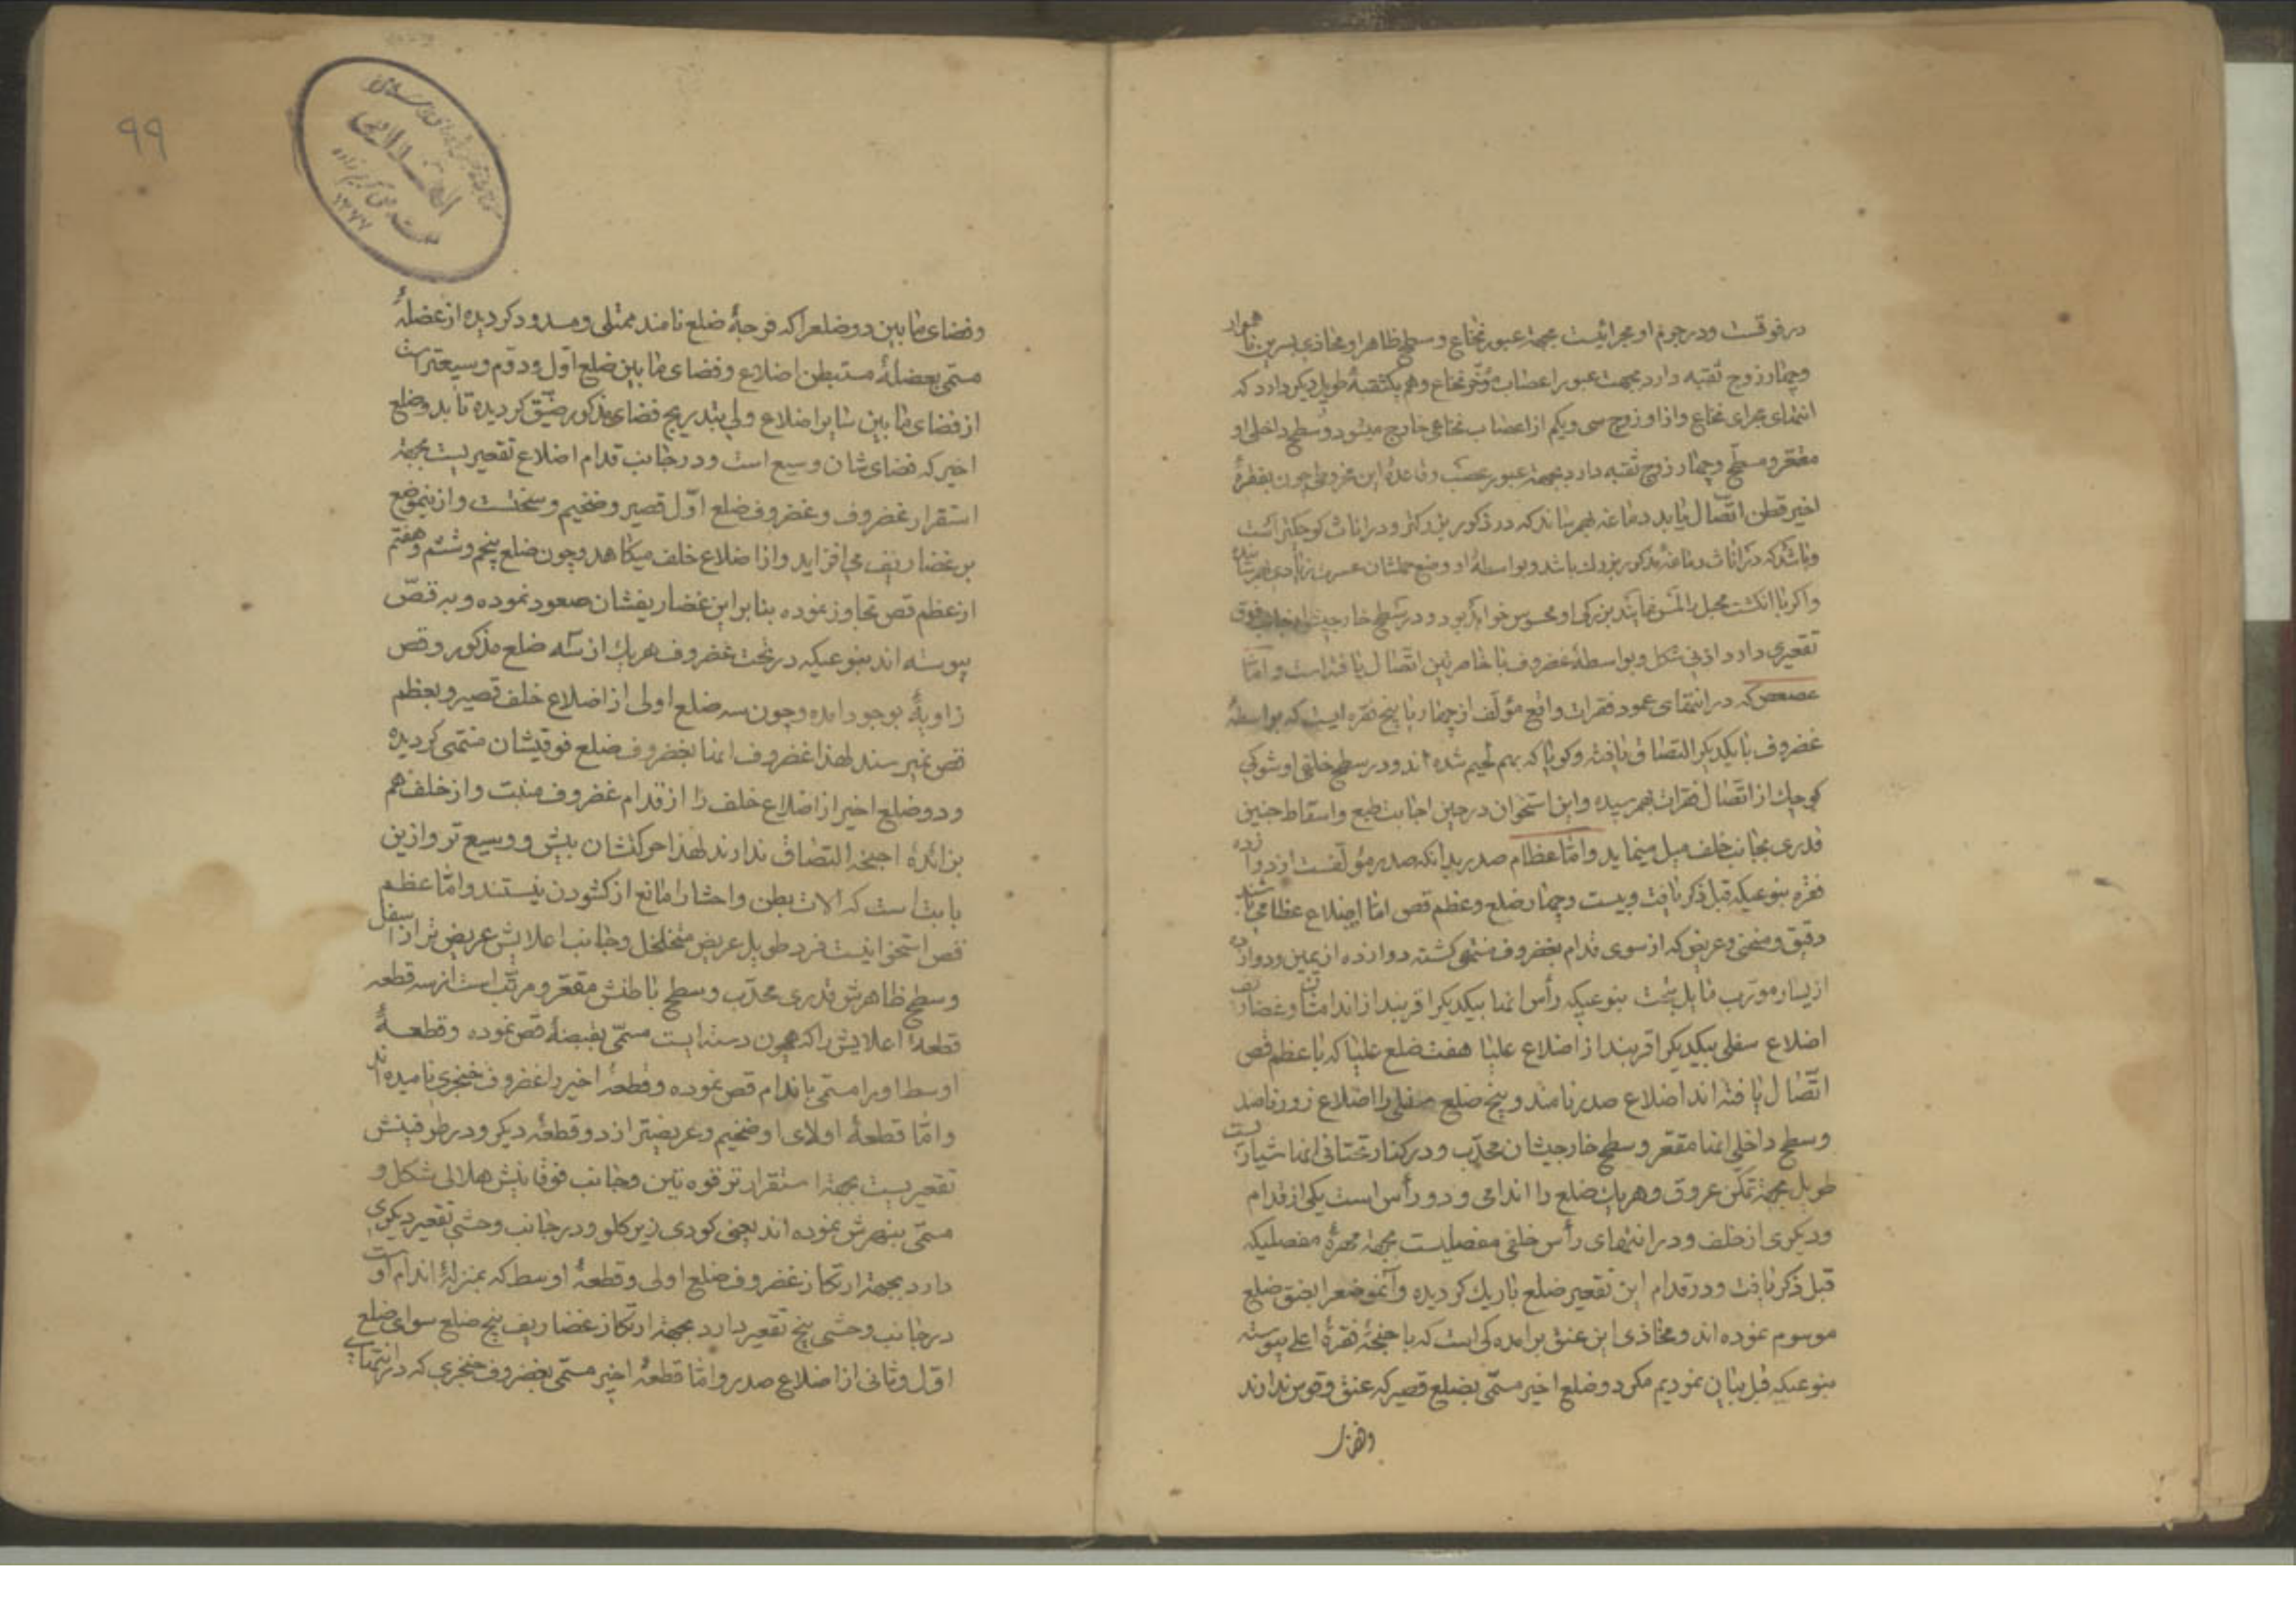 در فوقست و در جرم او مجرائیست بجهة عبور نخاع و سطح ظاهر او محاذی بسرین ناهموار
و چهار زوج ثقبه دارد بجهت عبور اعصاب مؤخر نخاع و هم یکثقبهٔ طویل دیگر دارد که
انتهای مجرای نخاع و از او زوج سی و یکم از اعصاب نخاعی خارج میشود و سطح داخلی او
مقعر و مسطح و چهار زوج ثقبه دارد بجهة عبور عصب و قاعدهٔ این مخروطی چون بفقرهٔ
اخیر قطن اتصال یابد دماغه بهم رساند که در ذکور بزرکتر و در اناث کوچکتر است
و باشد که در اناث دماغهٔ مذکور بزرك باشد و بواسطهٔ او وضع حملشان عسرت زیادی بهم رساند
و اکر با انکشت مهبل را لمس نمایند بزرکی او محسوس خواهد بود و در سطح خارجیش از جانب فوق
تقعیری دارد اذنی شکل و بواسطهٔ غضروف با خاصرتین اتصال یافته است و امّا
عصعص که در انتهای عمود فقرات واقع مؤلف از چهار یا پنج فقره ایست که بواسطهٔ
غضروف با یکدیکر التصاق یافته و کویا که بهم لحیم شده اند و در سطح خلفی او شوکی
کوچك از اتصال فقرات بهم رسیده و این استخوان در حین اجابت طبع و اسقاط جنین
قدری بجانب خلف میل مینماید و امّا عظام صدر بدانکه صدر مؤلفست از دوازده
فقره بنوعیکه قبل ذکر یافت و بیست و چهار ضلع و عظم قص امّا اضلاع عظامی باشند
دقیق و منحنی و عریض که از سوی قدام بغضروف منتهی کشته دوازده از یمین و دوازده
از یسار مورب مایل بتحت بنوعیکه رأس انها بیکدیکر اقربند از اندامشان و غضاریف
اضلاع سفلی بیکدیکر اقربند از اضلاع علیا هفت ضلع علیا که با عظم قص
اتّصال یافته اند اضلاع صدر نامند و پنج ضلع سفلی را اضلاع زور نامند
و سطح داخلی انها مقعر و سطح خارجیشان محدّب و در کنار تحتانی انها شیاریست
طویل بجهة تمکن عروق و هر یك ضلع را اندامی و دو رأس است یکی از قدام
و دیکری از خلف و در انتهای رأس خلفی مفصلیست بجهة مهرهٔ مفصلیکه
قبل ذکر یافت و در قدام این تقعیر ضلع باریك کردیده و آنموضع را بعنق ضلع
موسوم نموده اند و محاذی این عنق برامده کی است که با جنحهٔ فقرهٔ اعلی پیوسته
بنوعیکه قبل بیان نمودیم مکر دو ضلع اخیر مسمّی بضلع قصیر که عنق و قوس ندارند
و فضای
۹۹
۱۳۷۷
و فضای مابین دو ضلع را که فرجهٔ ضلع نامند ممتلی و مسدود کردیده از عضلهٔ
مسمّی بعضلهٔ مستبطن اضلاع و فضای مابین ضلع اول و دوّم وسیعتر است
از فضای مابین سایر اضلاع ولی بتدریج فضای مذکور ضیّق کردیده تا بدو ضلع
اخیر که فضای شان وسیع است و در جانب قدام اضلاع تقعیریست بجهة
استقرار غضروف و غضروف ضلع اوّل قصیر و ضخیم و سختست و از اینموضع
بر غضاریف می افزاید و از اضلاع خلف میکاهد و چون ضلع پنجم و ششم و هفتم
از عظم قص تجاوز نموده بنابراین غضاریفشان صعود نموده و به قصّ
پیوسته اند بنوعیکه در تحت غضروف هر یك از سه ضلع مذکور و قص
زاویهٔ بوجود امده و چون سه ضلع اولی از اضلاع خلف قصیر و بعظم
قص نمیرسند لهذا غضروف انها بغضروف ضلع فوقیشان منتهی کردیده
و دو ضلع اخیر از اضلاع خلف را از قدام غضروف منبت و از خلف هم
بزائدهٔ اجنحه التصاق ندارند لهذا حرکتشان بیش و وسیع تر و از این
بابت است که الات بطن و احشا را مانع از کشودن نیستند و امّا عظم
قص استخوانیست فرد طویل عریض متخلخل و جانب اعلایش عریض تر از اسفل
و سطح ظاهرش قدری محدّب و سطح باطنش مقعر و مرکّب است از سه قطعه
قطعهٔ اعلایش را که همچون دسته ایست مسمّی بقبضهٔ قص نموده و قطعهٔ
اوسط او را مسمّی باندام قص نموده و قطعهٔ اخیر را غضروف خنجری نامیده اند
و امّا قطعهٔ اولای او ضخیم و عریضتر از دو قطعهٔ دیکر و در طرفینش
تقعیریست بجهة استقرار ترقوه تین و جانب فوقانیش هلالی شکل و
مسمّی بنهرش نموده اند یعنی کودی زیر کلو و در جانب وحشی تقعیر دیکری
دارد بجهة ارتکاز غضروف ضلع اولی و قطعهٔ اوسط که بمنزلهٔ اندام اوست
در جانب وحشی پنج تقعیر دارد بجهة ارتکاز غضاریف پنج ضلع سوای ضلع
اوّل و ثانی از اضلاع صدر و امّا قطعهٔ اخیر مسمّی بغضروف خنجری که در انتهای